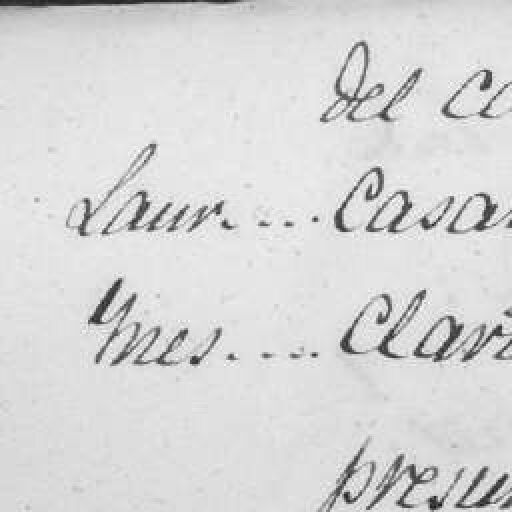 Del co
Laur.... Casar
Ynes..... Clari
presun